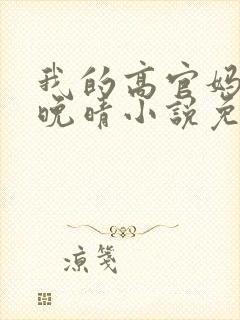 我的高官妈
晚晴小说免
凉笺